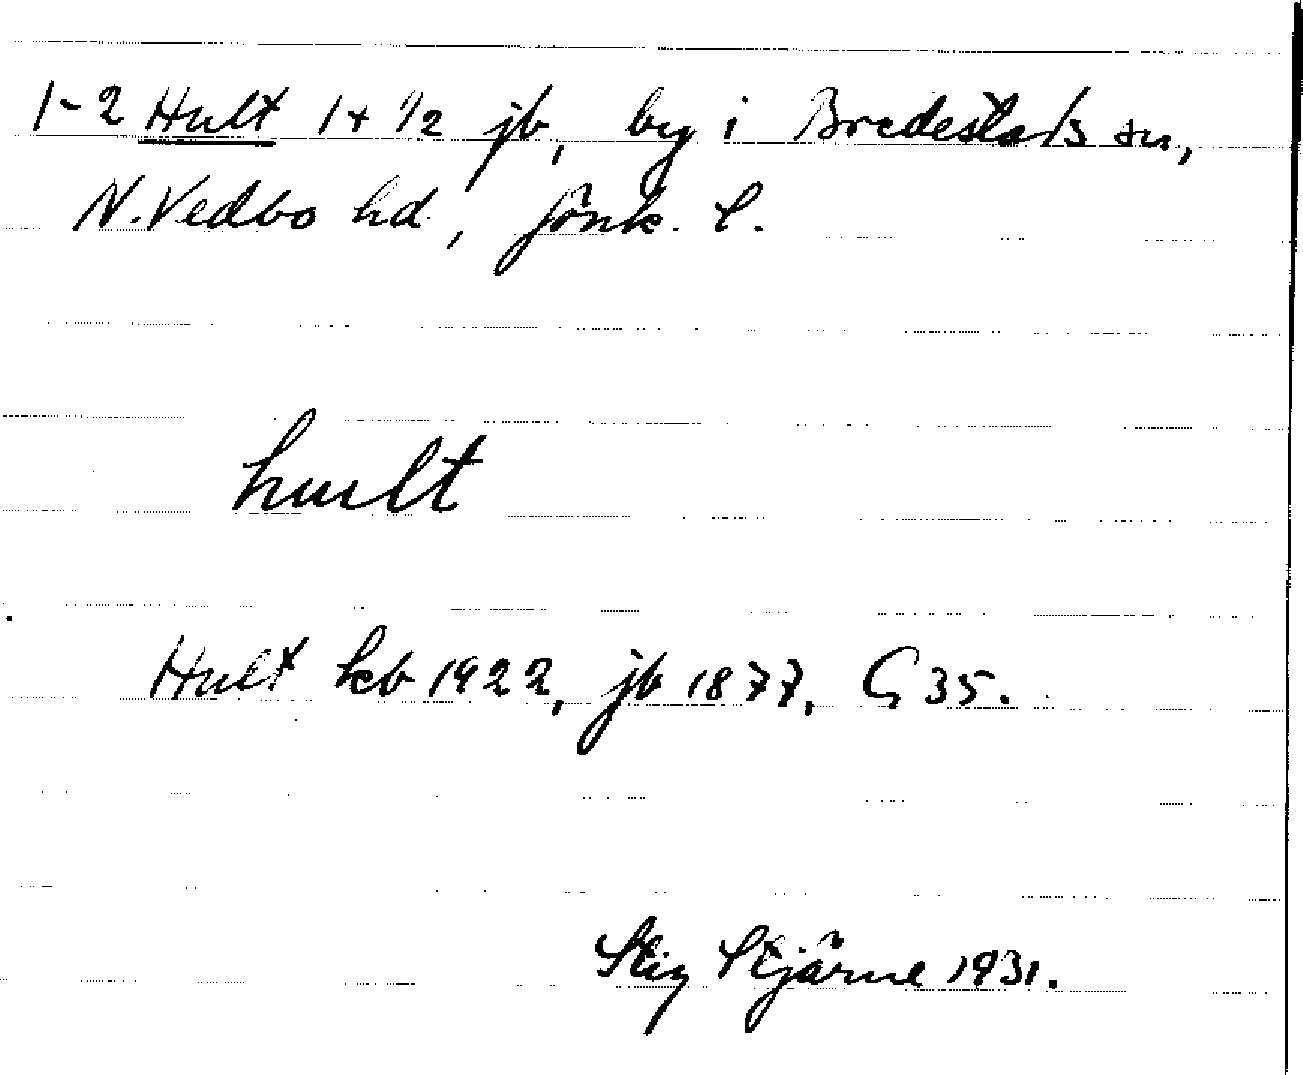 1-2 Hult 1+1/2 jb, by i Bredestads sn,
N. Vedbo hd, Jönk. l.
hult
Hult kb 1922, jb 1877, G 35.
Stig Stjärne 1931.